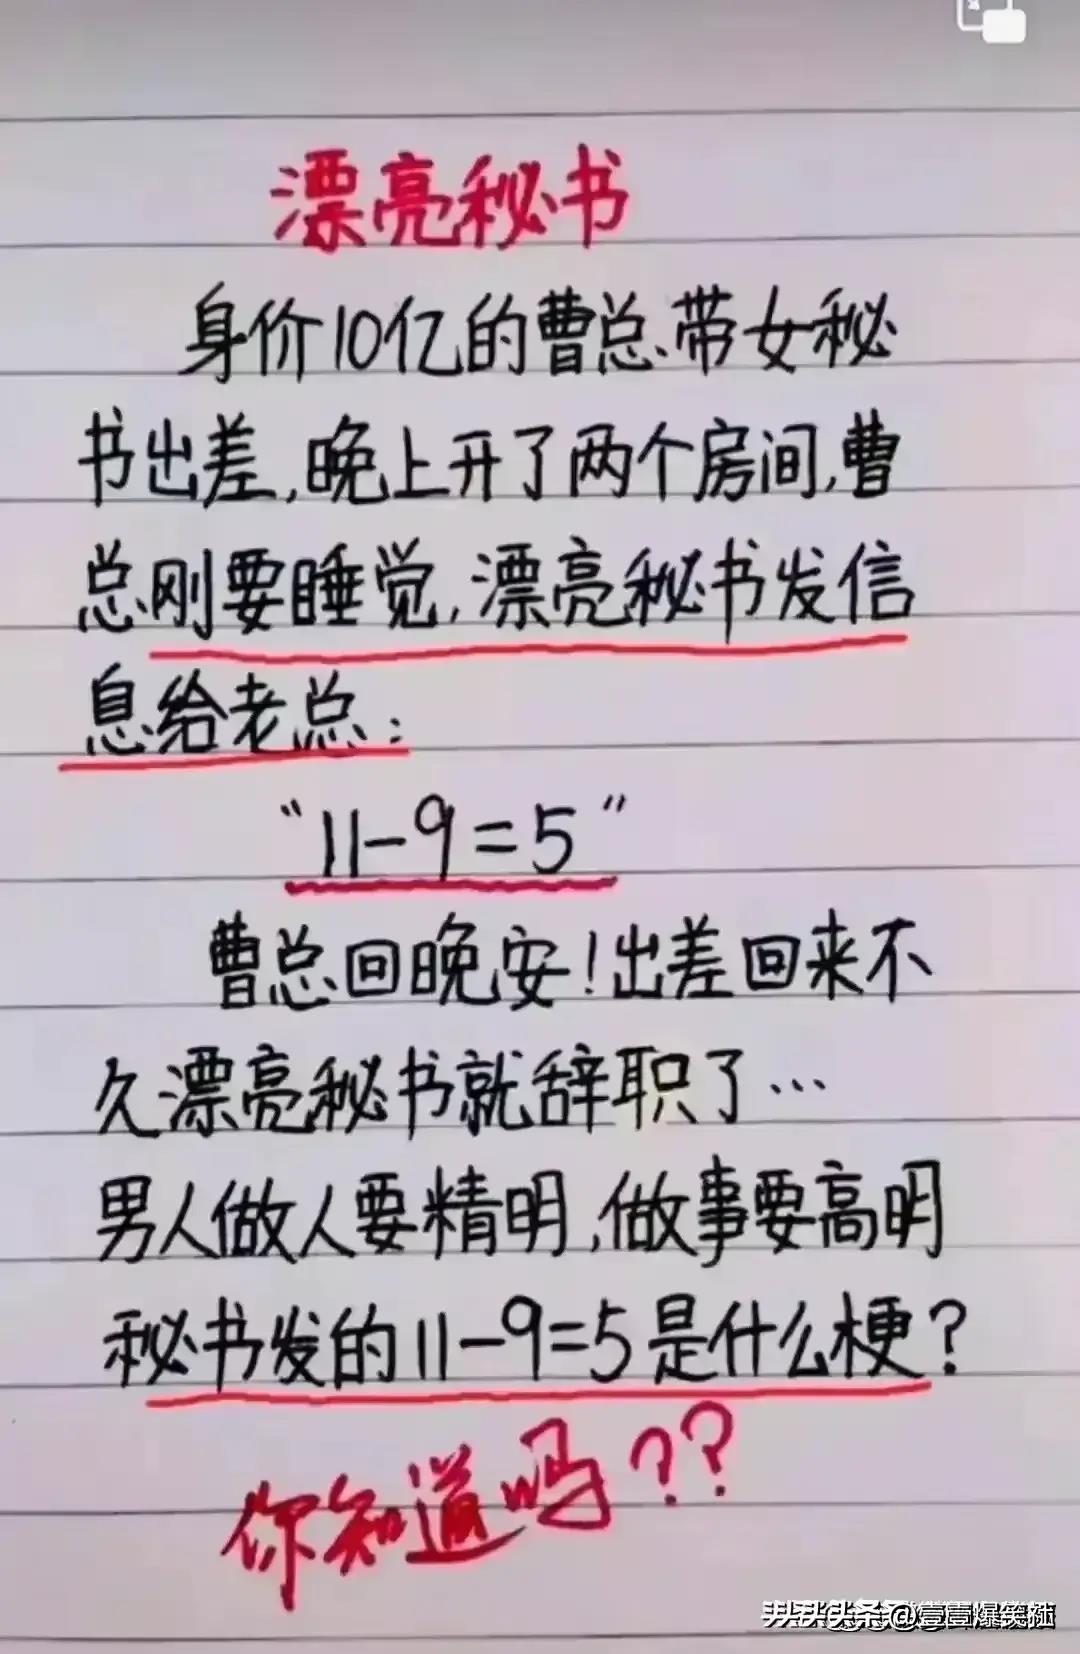 漂亮秘书
身价10亿的曹总带女秘
书出差,晚上开了两个房间,曹
总刚要睡觉,漂亮秘书发信
息给老总:
“11-9=5”
曹总回晚安!出差回来不
久漂亮秘书就辞职了…
男人做人要精明,做事要高明
秘书发的11-9=5是什么梗?
你知道吗??
头条@壹壹爆笑社